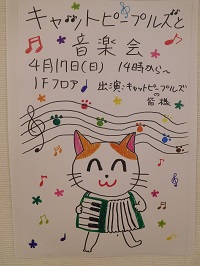 キャットピープルズと
音楽会
4月17日(日) 14時から〜
1Fフロア 出演:キャットピープルズ
の
皆様